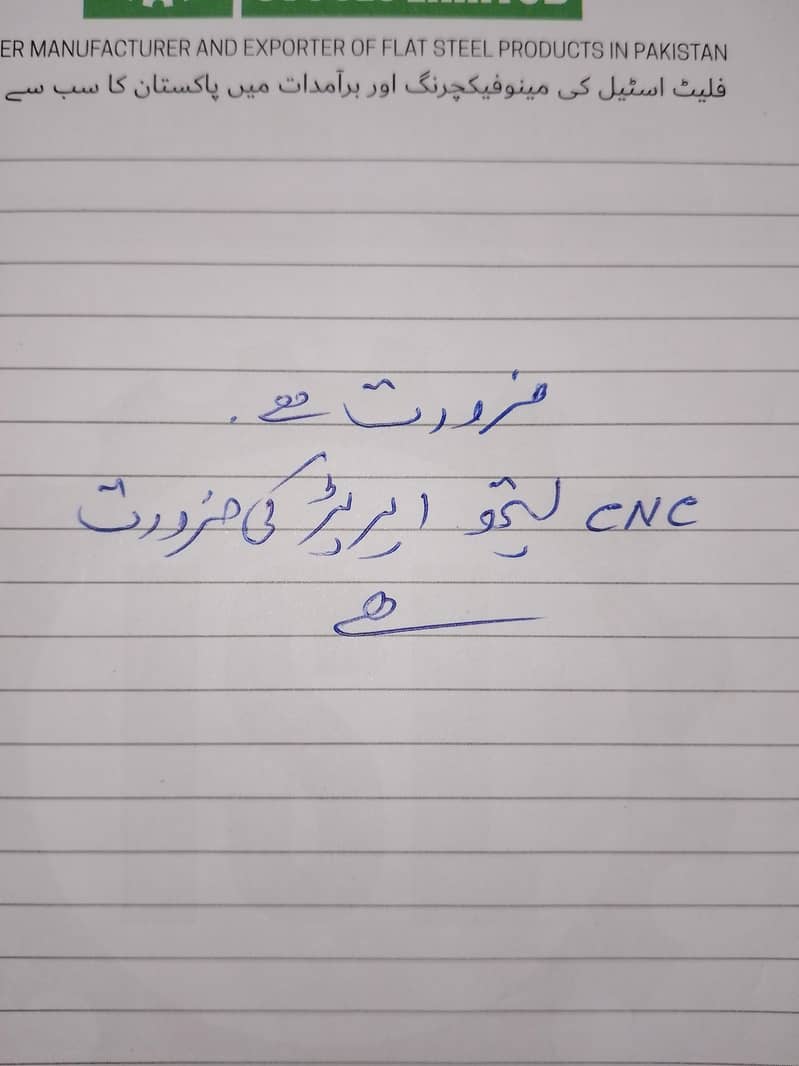 ER MANUFACTURER AND EXPORTER OF FLAT STEEL PRODUCTS IN PAKISTAN
فلیٹ اسٹیل کی مینوفیکچرنگ اور برآمدات میں پاکستان کا سب سے
ضرورت ہے۔
CNC لیتھ اپریٹر کی ضرورت
ہے